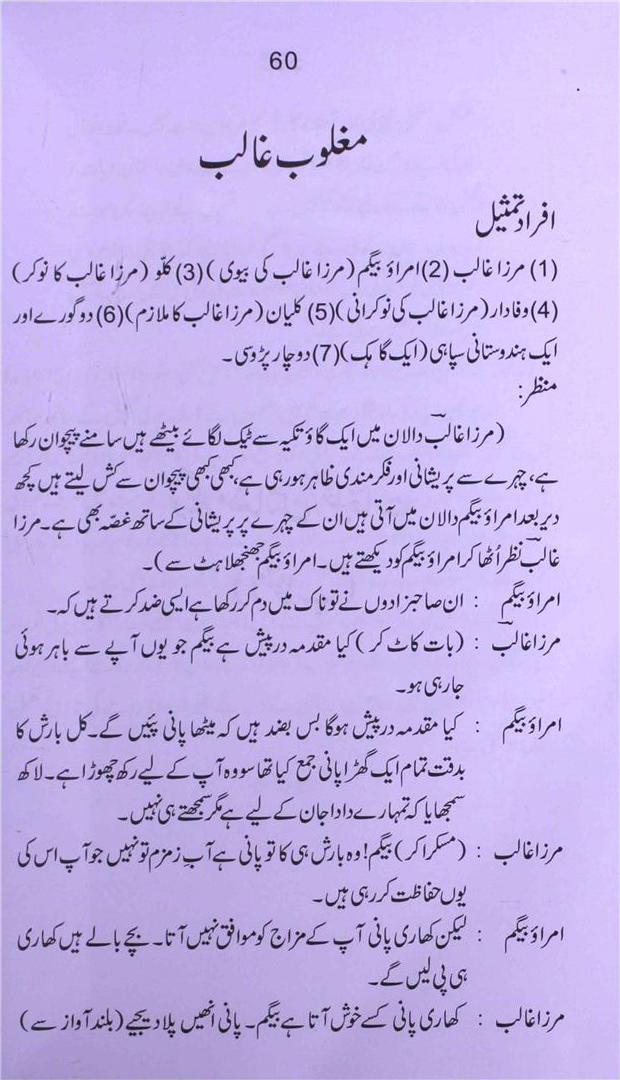 60
مغلوب غالب
افراد تمثیل
(1) مرزا غالب (2) امراؤ بیگم (مرزا غالب کی بیوی) (3) کلّو (مرزا غالب کا نوکر)
(4) وفادار (مرزا غالب کی نوکرانی) (5) کلیان (مرزا غالب کا ملازم) (6) دو گورے اور
ایک ہندوستانی سپاہی (ایک گاہک) (7) دو چار پڑوسی۔
منظر:
(مرزا غالبؔ دالان میں ایک گاؤ تکیہ سے ٹیک لگائے بیٹھے ہیں سامنے پیچوان رکھا
ہے، چہرے سے پریشانی اور فکر مندی ظاہر ہو رہی ہے، کبھی کبھی پیچوان سے کش لیتے ہیں کچھ
دیر بعد امراؤ بیگم دالان میں آتی ہیں ان کے چہرے پر پریشانی کے ساتھ غصّہ بھی ہے۔ مرزا
غالبؔ نظر اُٹھا کر امراؤ بیگم کو دیکھتے ہیں۔ امراؤ بیگم جھنجھلاہٹ سے)۔
امراؤ بیگم : ان صاحبزادوں نے تو ناک میں دم کر رکھا ہے ایسی ضد کرتے ہیں کہ۔
مرزا غالبؔ : (بات کاٹ کر) کیا مقدمہ درپیش ہے بیگم جو یوں آپے سے باہر ہوئی
جا رہی ہو۔
امراؤ بیگم : کیا مقدمہ درپیش ہوگا بس بضد ہیں کہ میٹھا پانی پئیں گے۔ کل بارش کا
بدقت تمام ایک گھڑا پانی جمع کیا تھا سو وہ آپ کے لیے رکھ چھوڑا ہے۔ لاکھ
سمجھایا کہ تمہارے دادا جان کے لیے ہے مگر سمجھتے ہی نہیں۔
مرزا غالب : (مسکرا کر) بیگم! وہ بارش ہی کا تو پانی ہے آبِ زمزم تو نہیں جو آپ اس کی
یوں حفاظت کر رہی ہیں۔
امراؤ بیگم : لیکن کھاری پانی آپ کے مزاج کو موافق نہیں آتا۔ بچے بالے ہیں کھاری
ہی پی لیں گے۔
مرزا غالب : کھاری پانی کسے خوش آتا ہے بیگم۔ پانی انھیں پلا دیجیے (بلند آواز سے)